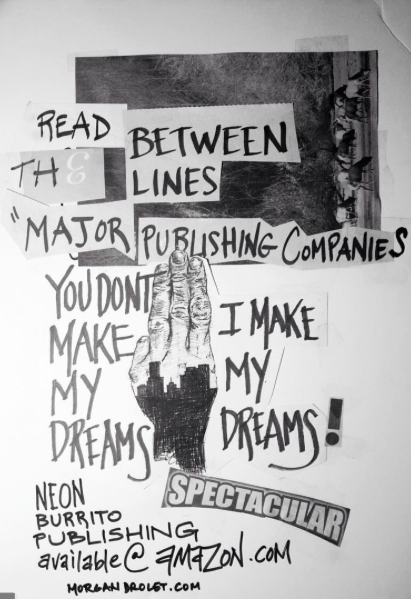 READ BETWEEN
THE LINES
"MAJOR PUBLISHING COMPANIES
YOU DONT
MAKE
MY
DREAMS
I MAKE
MY
DREAMS!
SPECTACULAR
NEON
BURRITO
PUBLISHING
available@amazon.com
MORGANDROLET.COM